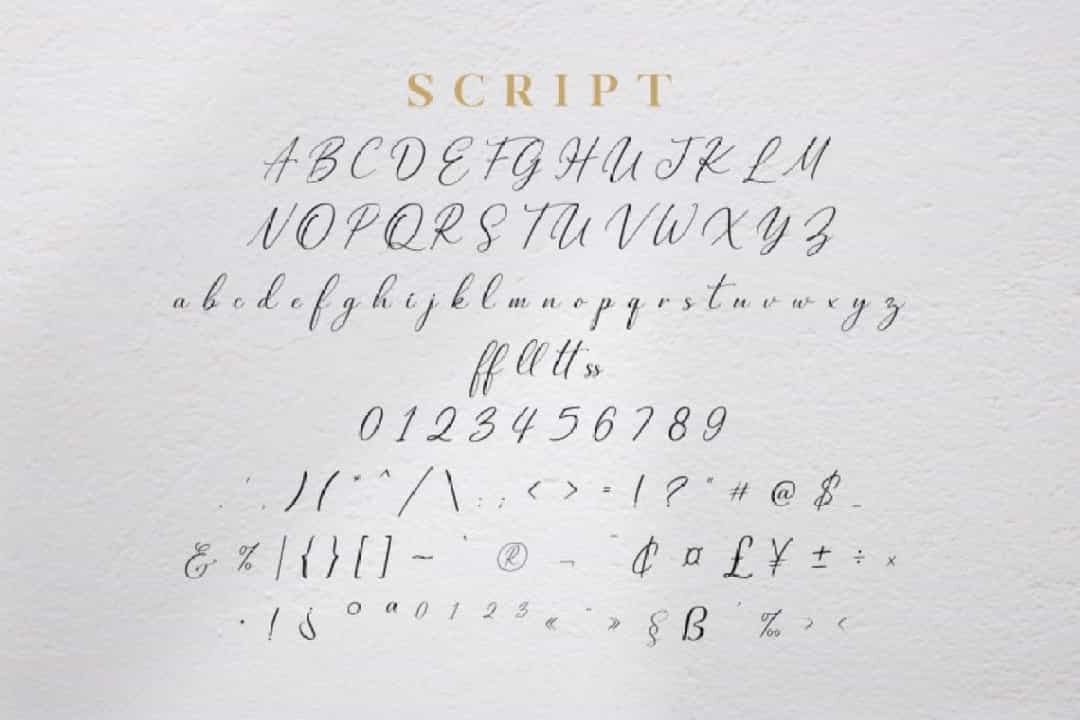 SCRIPT
A B C D E F G H I J K L M
N O P Q R S T U V W X Y Z
a b c d e f g h i j k l m n o p q r s t u v w x y z
ff ll tt ss
0 1 2 3 4 5 6 7 8 9
. ' , ) ( * ^ / \ : ; < > = ! ? " # @ $ _
& % | { } [ ] ~ ` ® ¬ ¯ ¢ ¤ £ ¥ ± ÷ ×
· ! ¿ º ª 0 1 2 3 « - » § ß ' ‰ › ‹